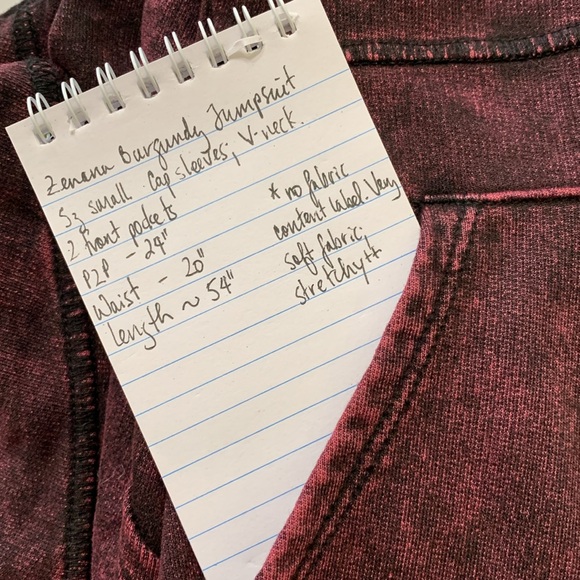 Zenana Burgundy Jumpsuit
Sz small. Cap sleeves, V-neck.
2 front pockets
P2P - 24"
Waist - 20"
length ~ 54"
* no fabric
content label. Very
soft fabric.
stretchy++